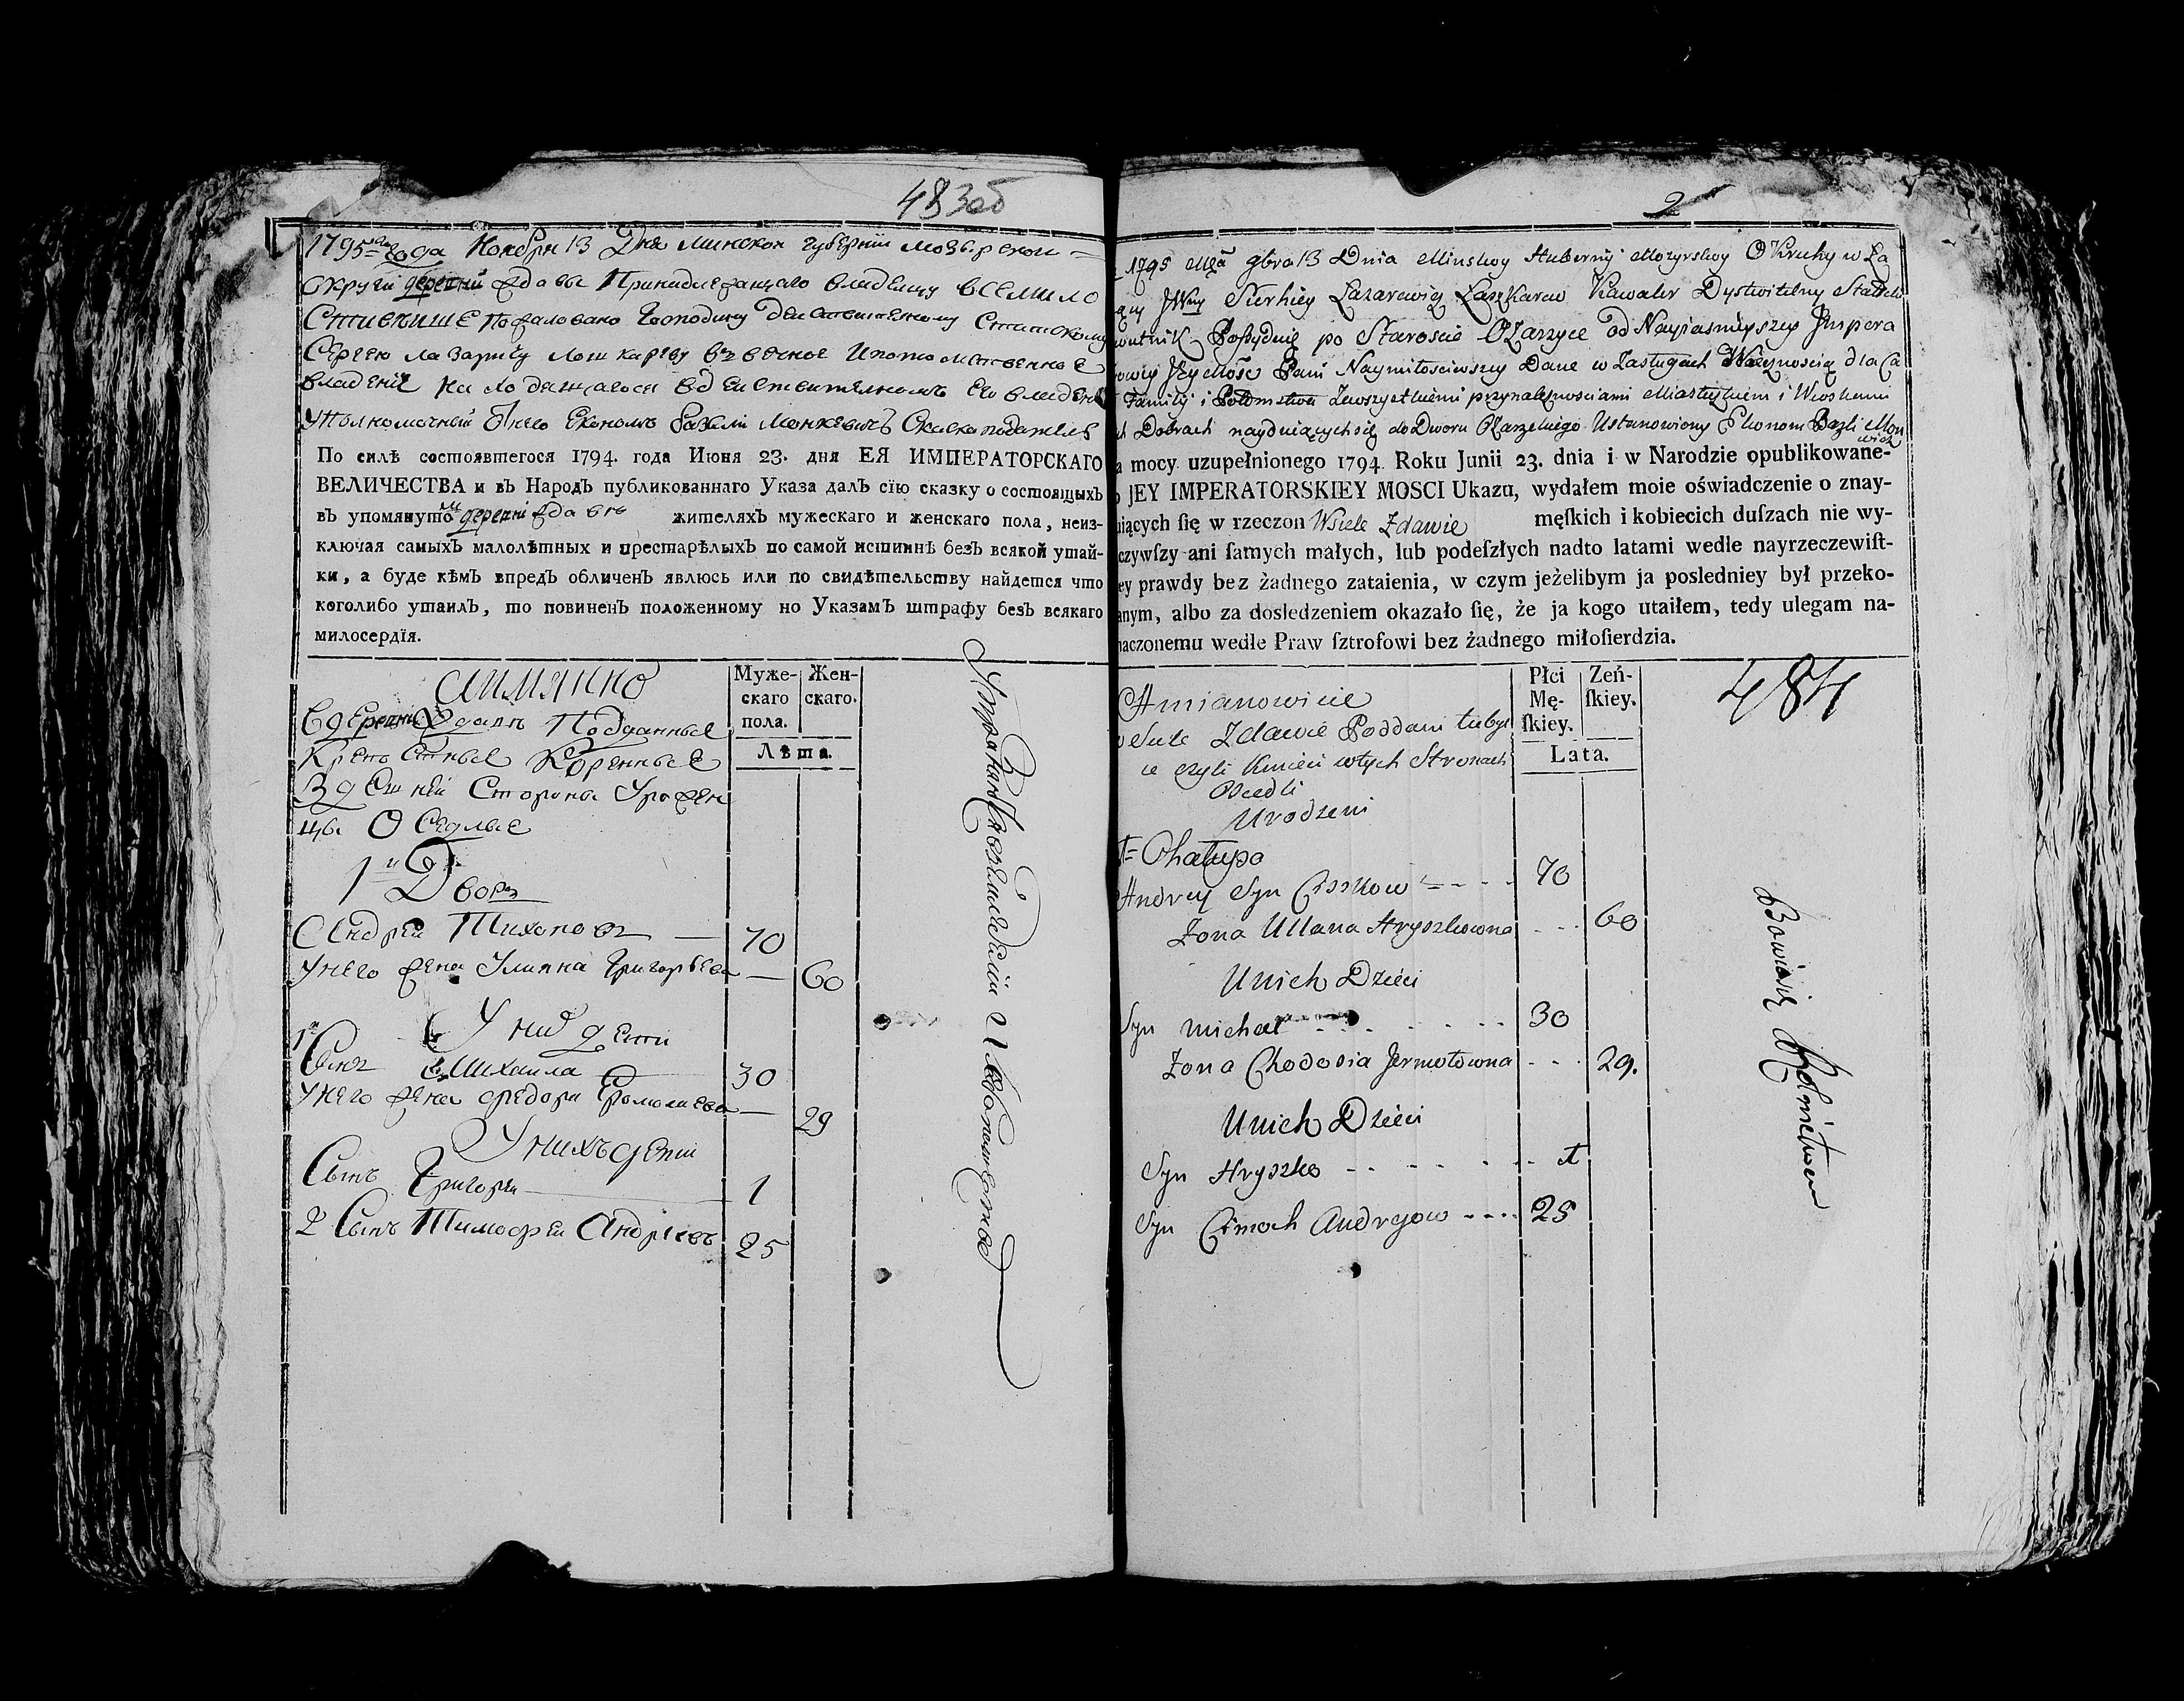 483об
1795 года Ноября 13 Дня Минской губернии Мозырской
округи деревни Здавы Принадлежащаго владельцу всемило
стивейше пожаловано Господину Действительному Статскому
Сергею Лазаричу Лошкареву в вечное и потомственное
владение находящагося в действительномъ его владен
Уполномочный от него Економъ Базыли Монкевичъ Сказкоподатель
По силѣ состоявшегося 1794. года Июня 23. дня ЕЯ ИМПЕРАТОРСКАГО
ВЕЛИЧЕСТВА и въ Народъ публикованнаго Указа далъ сїю сказку о состоящыхъ
въ упомянуто деревни Здавъ жителяхъ мужескаго и женскаго пола, неиз-
ключая самыхъ малолѣтныхъ и престарѣлыхъ по самой истиннѣ безъ всякой утай-
ки, а буде кѣмъ впредъ обличенъ явлюсь или по свидѣтельству найдется что
коголибо утаилъ, то повиненъ положенному по Указамъ штрафу безъ всякаго
милосердїя.
Аимянно
Муже-скаго пола. Жен-скаго.
Лѣта.
В деревни Здавъ Подданные
Крепостные Коренные
Здешней Стороны Урожен
цы Оседлые
1й Дворъ
Андрей Тихоновъ — 70
У него жена Улияна Григорьева — 60
У них дети
1й Сынъ Михаила 30
У него жена Федора Ермолаева — 29
У нихъ дети
Сынъ Григорей 1
2 Сынъ Тимофей Андреевъ 25
2
1795 Mca 9bra 13 Dnia Minskoy Huberny Mozyrskoy Okruhy w Ła
Jwny Sierhiey Łazarewicz Łaszkarew Kawaler Dystwitelny Statski
Possyduie po Staroscie Ozarzyce od Nayiasnieyszey Impera
Jeymość Pani Naymiłosciwszey Dane w Zasługach Wiecznoscią dla Ca
Familij i Potomstwa Zewszystkiemi przynalęznosciami Miasteczkiem i Wioskami
Dobrach nayduiących się do Dworu Ozarzckiego Ustanowiony Ekonom Bazyli Mon
wicz
a mocy uzupełnionego 1794. Roku Junii 23. dnia i w Narodzie opublikowane-
o JEY IMPERATORSKIEY MOSCI Ukazu, wydałem moie oświadczenie o znay-
uiących ſię w rzeczon Wsiele Zdawie męſkich i kobiecich duſzach nie wy-
czywſzy ani ſamych małych, lub podeſzłych nadto latami wedle nayrzeczewiſt-
ey prawdy bez żadnego zataienia, w czym jeżelibym ja posledniey był przeko-
anym, albo za dosledzeniem okazało ſię, że ja kogo utaiłem, tedy ulegam na-
naczonemu wedle Praw ſztrofowi bez żadnego miłoſierdzia.
Amianowicie
Płci Mę-ſkiey. Zeń-ſkiey.
Lata.
484
Siele Zdawie Poddani tubyl
ce czyli Kmieci wtych Stronach
Osiedli
Urodzeni
1= Chałupa
Andrey Syn Ciszkow 70
Zona Ullana Hryszkowna 60
Unich Dzieci
Syn Michał 30
Zona Chodosia Jermołowna 29.
Unich Dzieci
Syn Hryszko 1
Syn Cimoch Andreyow 25